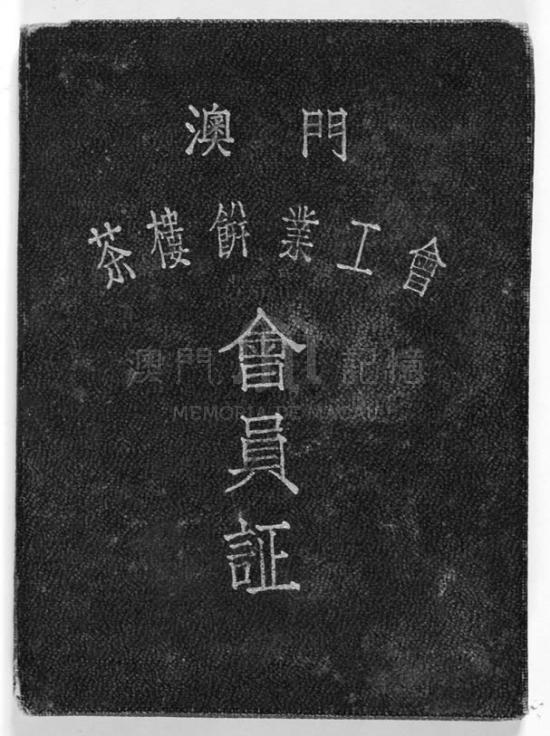 澳門
茶樓餅業工會
會員証
澳門記憶
MEMORIA DE MACAU